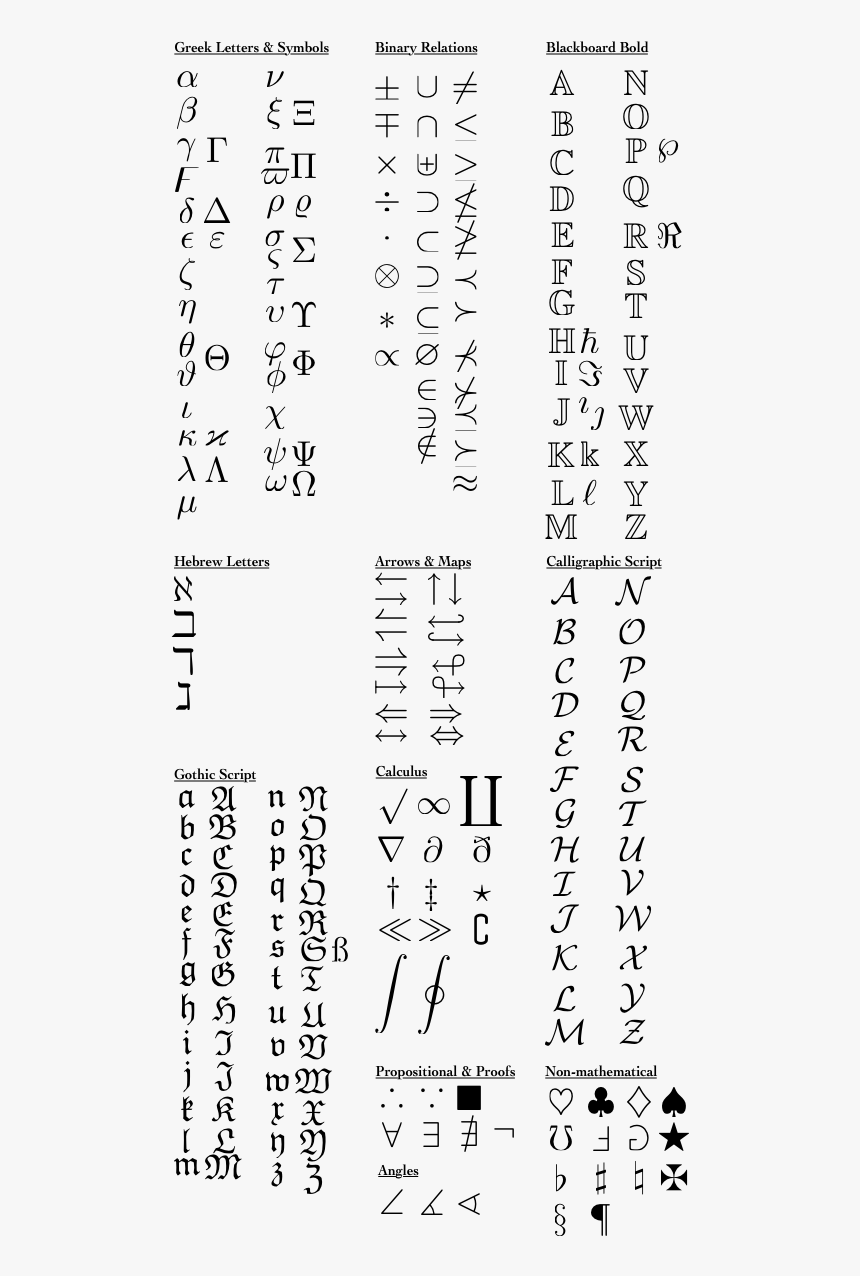 Greek Letters & Symbols
α ν
β ξ Ξ
γ Γ
π ϖ Π
Ϝ
δ Δ ρ ϱ
ϵ ε σ ς Σ
ζ τ
η υ ϒ
θ ϑ Θ φ ϕ Φ
ι χ
κ ϰ
λ Λ ψ Ψ
ω Ω
μ
Binary Relations
± ∪ ≠
∓ ∩ ≤
× ⊎ ≥
÷ ⊃ ≰
· ⊂ ≱
⊗ ⊇ ≺
∗ ⊆ ≻
∝ ∅ ⊀
∈ ⊁
∋ ⪯
∉ ⪰
≈
Blackboard Bold
𝔸 ℕ
𝔹 𝕆
ℂ ℙ ℘
𝔻 ℚ
𝔼 ℝ ℜ
𝔽 𝕊
𝔾 𝕋
ℍ ℏ 𝕌
𝕀 ℑ 𝕍
𝕁 ı ȷ 𝕎
𝕂 𝕜 𝕏
𝕃 ℓ 𝕐
𝕄 ℤ
Hebrew Letters
ℵ
ℶ
ℸ
ℷ
Arrows & Maps
← ↑ ↓
→
↼ ↩
↽ ↪
⇀ ↫
⇁
↦ ↬
⇐ ⇒
↔ ⇔
Calligraphic Script
𝒜 𝒩
ℬ 𝒪
𝒞 𝒫
𝒟 𝒬
ℰ ℛ
ℱ 𝒮
𝒢 𝒯
ℋ 𝒰
ℐ 𝒱
𝒥 𝒲
𝒦 𝒳
ℒ 𝒴
ℳ 𝒵
Gothic Script
𝔞 𝔄 𝔫 𝔑
𝔟 𝔅 𝔬 𝔒
𝔠 ℭ 𝔭 𝔓
𝔡 𝔇 𝔮 𝔔
𝔢 𝔈 𝔯 ℜ
𝔣 𝔉 𝔰 𝔖 ß
𝔤 𝔊 𝔱 𝔗
𝔥 ℌ 𝔲 𝔘
𝔦 ℑ 𝔳 𝔙
𝔧 𝔍 𝔴 𝔚
𝔨 𝔎 𝔵 𝔛
𝔩 𝔏 𝔶 𝔜
𝔪 𝔐 𝔷 ℨ
Calculus
√ ∞ ∐
∇ ∂ ð
† ‡ ⋆
≪ ≫ ∁
∫ ∮
Propositional & Proofs
∴ ∵ ■
∀ ∃ ∄ ¬
Angles
∠ ∡ ∢
Non-mathematical
♡ ♣ ♢ ♠
℧ Ⅎ ⅁ ★
♭ ♯ ♮ ✠
§ ¶